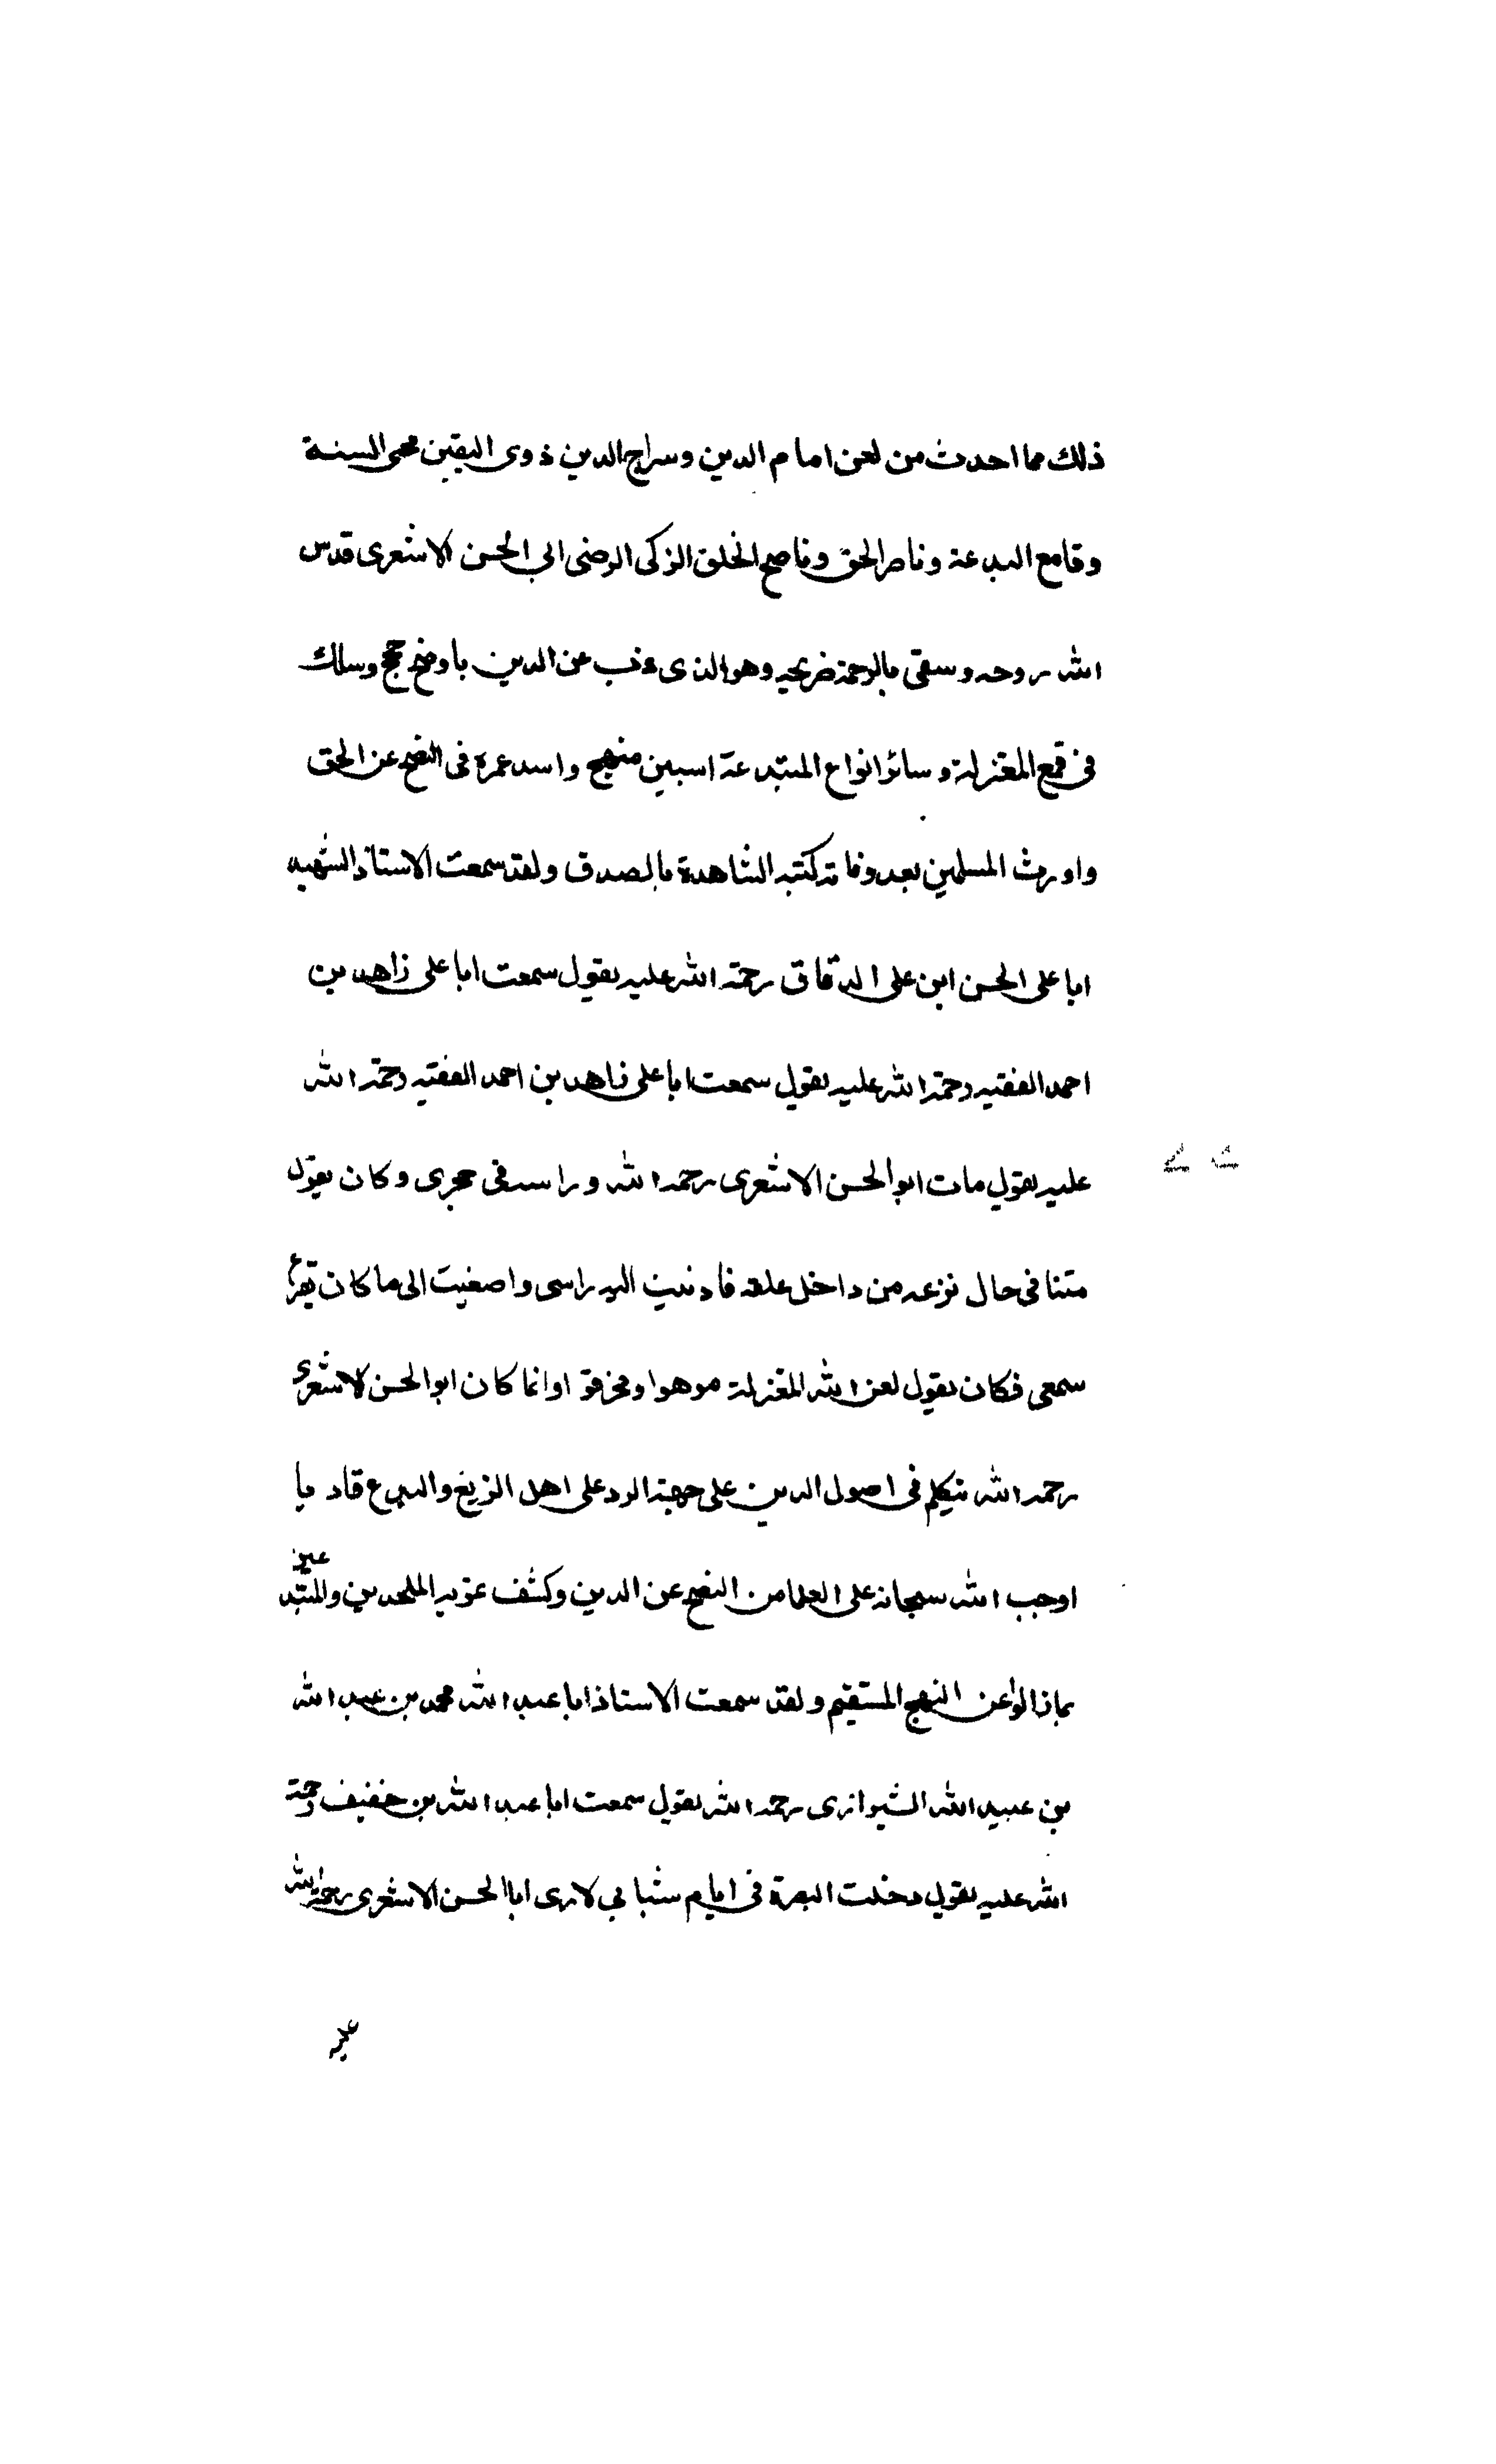 ذلك مما احدث من لعن امام الدين وسراج الدين ذوى اليقين محى السنة
وقامع البدعة وناصر الحق وناصح الخلق الزكى الرضى ابي الحسن الاشعرى قدس
الله روحه وسقى بالرحمة ضريحه وهو الذى ذب عن الدين باوضح حجج وسلك
فى قمع المعتزلة وسائر انواع المبتدعة ابين منهج واسد عمره فى النضح عن الحق
واورث المسلمين بعد وفاته كتبه الشاهدة بالصدق ولقد سمعت الاستاذ الشهيد
ابا على الحسن ابن على الدقاق رحمة الله عليه يقول سمعت ابا على زاهد بن
احمد الفقيه رحمة الله عليه يقول سمعت ابا على زاهد بن احمد الفقيه رحمة الله
عليه يقول مات ابو الحسن الاشعرى رحمه الله وراسه فى حجرى وكان يقول
متنا فى حال نزعه من داخل حلقه فادنيت اليه راسى واصغيت الى ما كان يقرع
سمعى فكان يقول لعن الله المعتزلة موهوا ومخرقوا وانما كان ابو الحسن الاشعرى
رحمه الله يتكلم فى اصول الدين على جهة الرد على اهل الزيغ والبدع قاد با
اوجب الله سبحانه على العلما من النضح عن الدين وكشف تمويه الملحدين والمبتدعين
بما زالوا عن النهج المستقيم ولقد سمعت الاستاذ ابا عبد الله محمد بن عبد الله
بن عبيد الله الشيرازى رحمه الله يقول سمعت ابا عبد الله بن خفيف رحمة
الله عليه يقول دخلت البصرة فى ايام شبابي لارى ابا الحسن الاشعرى رحمة الله
عليه